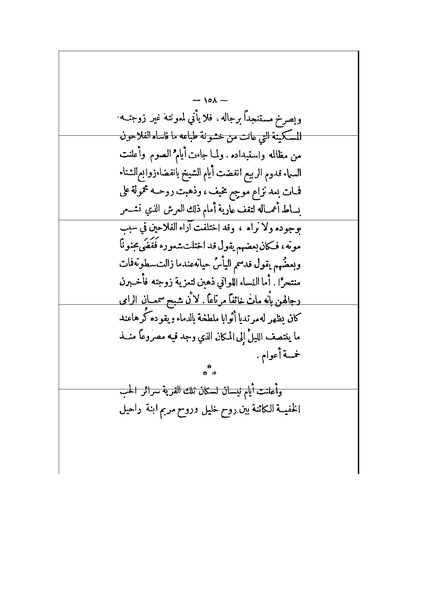 — ١٥٨ —
ويصرخ مستنجداً برجاله ، فلا يأتي لمعونته غير زوجته
المسكينة التي عانت من خشونة طباعه ما قاساه الفلاحون
من مظالمه واستبداده . ولما جاءت أيام الصوم وأعلنت
السماء قدوم الربيع انقضت أيام الشيخ بانقضاء زوابع الشتاء
فمات بعد نزاع موجع مخيف ، وذهبت روحه محمولة على
بساط أعماله لتقف عارية أمام ذلك العرش الذي نشعر
بوجوده ولا نراه ، وقد اختلفت آراء الفلاحين في سبب
موته ، فكان بعضهم يقول قد اختلت شعوره فقضى مجنوناً
وبعضهم يقول قد سمم اليأس حياته عندما زالت سطوته فمات
منتحراً . أما النساء اللواتي ذهبن لتعزية زوجته فأخبرن
رجالهن بأنه مات خائفاً مرتاعاً . لأن شبح سمعان الرامي
كان يظهر له مرتدياً أثواباً ملطخة بالدماء ويقوده كرهاً عند
ما ينتصف الليل إلى المكان الذي وجد فيه مصروعاً منذ
خمسة أعوام .
***
وأعلنت أيام نيسان لسكان تلك القرية سرائر الحب
الخفية الكائنة بين روح خليل وروح مريم ابنة راحيل